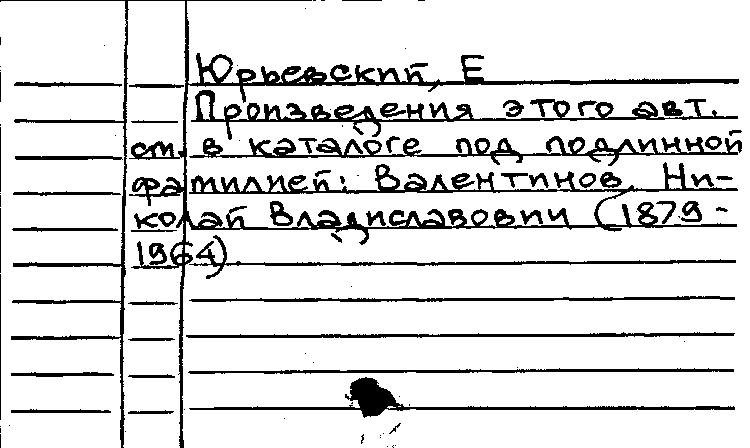 Юрьевский, Е
Произведения этого авт.
см. в каталоге под подлинной
фамилией: Валентинов, Ни-
колай Владиславович (1879-
1964).